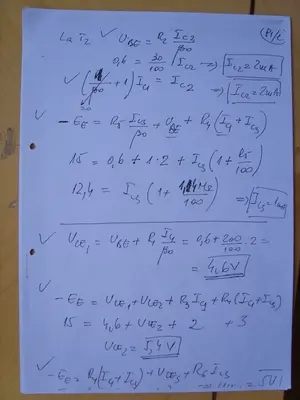 P1/2
La T2 ✓ U_BE = R2 I_C3/β0
0,6 = 30/100 I_C2 => I_C2 = 2mA
✓ (1/β0 + 1) I_C1 = I_C2 => I_C1 = 2mA
✓ -E_E = R5 I_C3/β0 + U_BE + R4 (I_C1 + I_C3)
15 = 0,6 + 1·2 + I_C3 (1 + R5/100)
12,4 = I_C3 (1 + /100) => I_C3 = 1mA
✓ U_CE1 = U_BE + R1 I_C1/β0 = 0,6 + 200/100 · 2 =
= 4,6V
✓ -E_E = U_CE1 + U_CE2 + R3 I_C1 + R4 (I_C1 + I_C3)
15 = 4,6 + U_CE2 + 2 + 3
U_CE2 = 5,4V
✓ -E_E = R4 (I_C1 + I_C3) + U_CE3 + R6 I_C3
5V